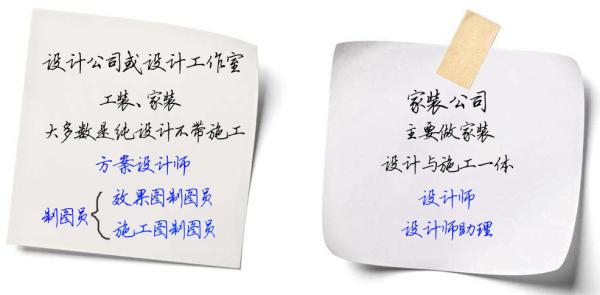 设计公司或设计工作室
工装、家装
大多数是纯设计不带施工
方案设计师
制图员
效果图制图员
施工图制图员
家装公司
主要做家装
设计与施工一体
设计师
设计师助理